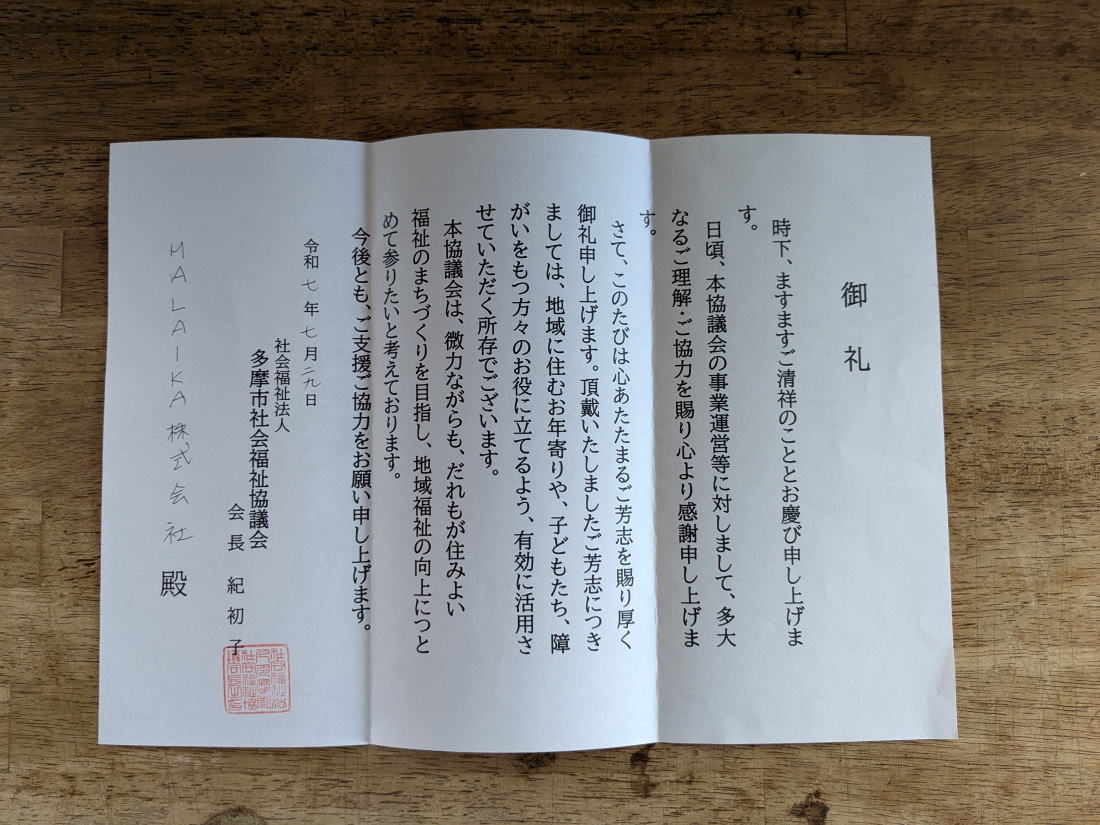 御礼
時下、ますますご清祥のこととお慶び申し上げま
す。
日頃、本協議会の事業運営等に対しまして、多大
なるご理解・ご協力を賜り心より感謝申し上げま
す。
さて、このたびは心あたたまるご芳志を賜り厚く
御礼申し上げます。頂戴いたしましたご芳志につき
ましては、地域に住むお年寄りや、子どもたち、障
がいをもつ方々のお役に立てるよう、有効に活用さ
せていただく所存でございます。
本協議会は、微力ながらも、だれもが住みよい
福祉のまちづくりを目指し、地域福祉の向上につと
めて参りたいと考えております。
今後とも、ご支援ご協力をお願い申し上げます。
令和七年七月二九日
社会福祉法人
多摩市社会福祉協議会
会長 紀初子
MALAIKA株式会社 殿